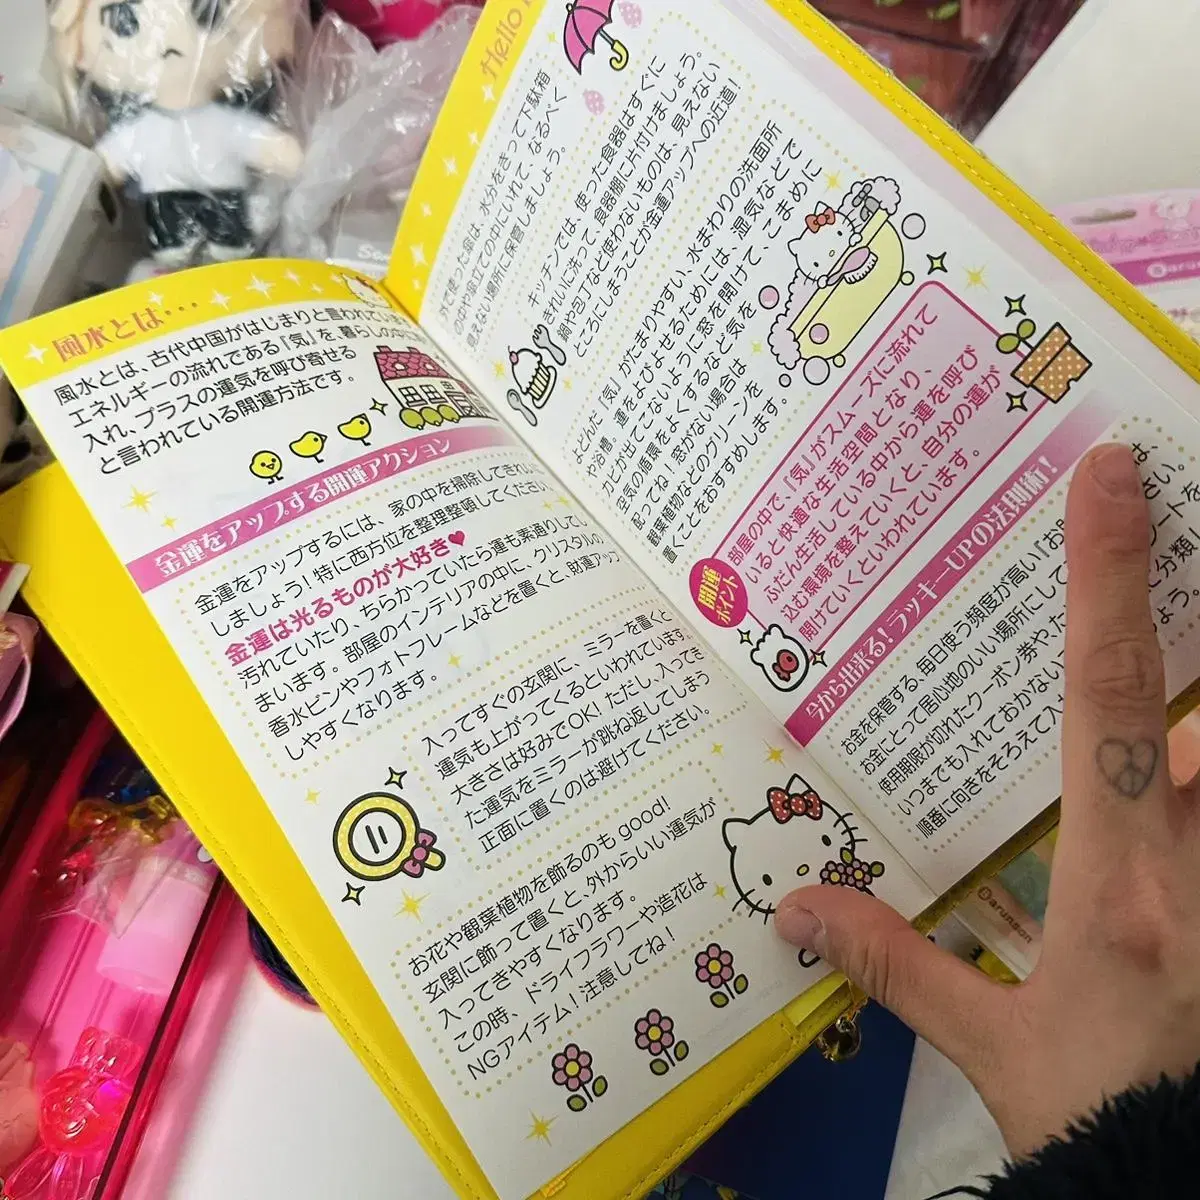 風水とは・・・
風水とは、古代中国がはじまりと言われてい
エネルギーの流れである「気」を、暮らしの中
入れ、プラスの運気を呼び寄せる
と言われている開運方法です。
金運をアップする開運アクション
金運をアップするには、家の中を掃除してきれい
しましょう！特に西方位を整理整頓してください
金運は光るものが大好き♥
汚れていたり、ちらかっていたら運も素通りしてし
まいます。部屋のインテリアの中に、クリスタルの
香水ビンやフォトフレームなどを置くと、財運アップ
しやすくなります。
入ってすぐの玄関に、ミラーを置くと
運気も上がってくるといわれています。
大きさは好みでOK！ただし、入ってき
た運気をミラーが跳ね返してしまう
正面に置くのは避けてください。
お花や観葉植物を飾るのも good!
玄関に飾って置くと、外からいい運気が
入ってきやすくなります。
この時、ドライフラワーや造花は
NGアイテム！注意してね！
Hello
外で使った傘は、水分をきって下駄箱
の中や傘立ての中にいれて、なるべく
見えない場所に保管しましょう。
キッチンでは、使った食器はすぐに
きれいに洗って、食器棚に片付けましょう。
鍋や包丁など使わないものは、見えない
ところにしまうことが金運アップへの近道！
よどんだ「気」がたまりやすい、水まわりの洗面所
や浴槽。運をよびよせるためには、湿気などで
カビが出てこないように窓を開けて、こまめに
空気の循環をよくするなど気を
配ってね！窓がない場合は
観葉植物などのグリーンを
置くことをおすすめします。
開運
ポイント
部屋の中で、「気」がスムーズに流れて
いると快適な生活空間となり、
ふだん生活している中から運を呼び
込む環境を整えていくと、自分の運が
開けていくといわれています。
今から出来る！ラッキーUPの法則術！
お金を保管する、毎日使う頻度が高い「お
お金にとって居心地のいい場所にして
使用期限が切れたクーポン券や、た
いつまでも入れておかない
順番に向きをそろえて入
は、
さい。
シート、名
に分類！
ょう。
arunson
arunson